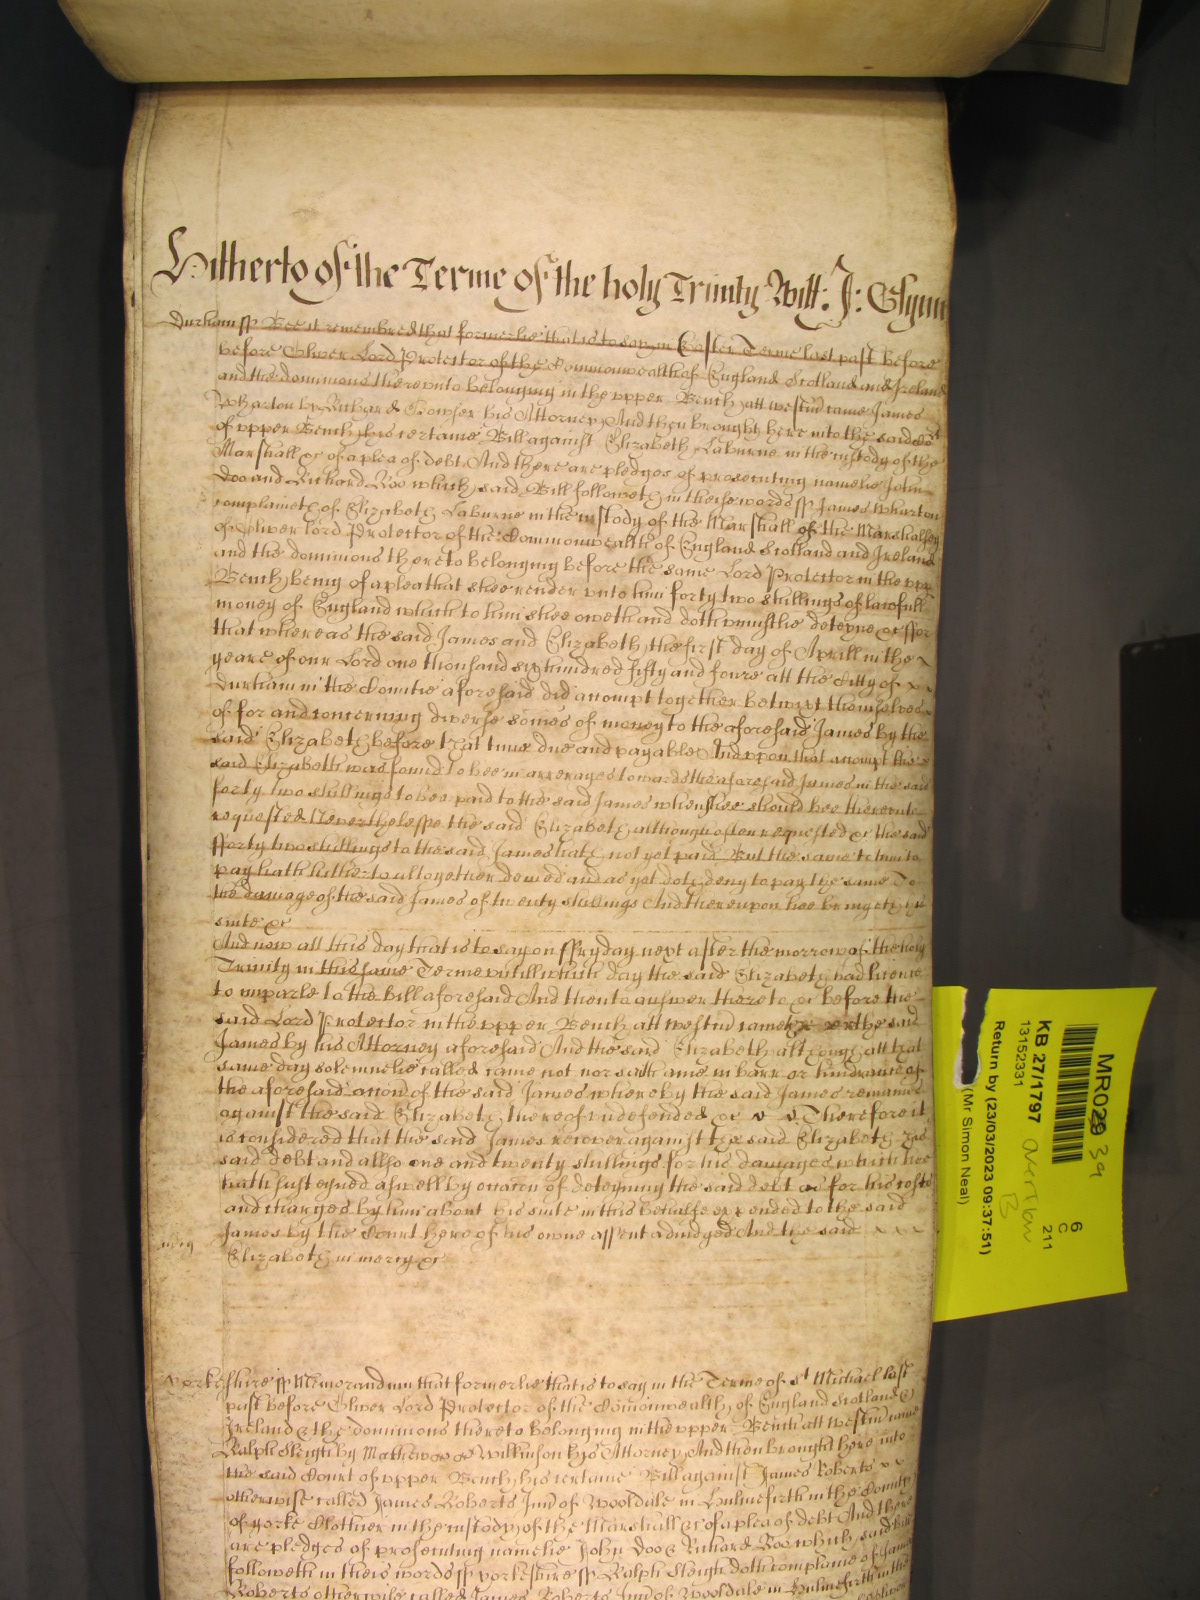 Hitherto of the Terme of the holy Trinity Will: J: Glynn
Durham ss Bee it remembred that formerlie that is to say in Easter Terme last past before
before Oliver Lord Protector of the Commonwealth of England Scotland and Ireland
and the dominions thereunto belonging in the upper Bench att westm came James
Wharton by Richard Bowser his Attorney And then brought here into the said Cort
of upper Bench his certaine Bill against Elizabeth Laburne in the custody of the
Marshall &c of a plea of debt And there are pledges of prosecuting namelie John
Doo and Richard Roo which said Bill followeth in theise words ss James Wharton
complaineth of Elizabeth Laburne in the custody of the Marshall of the Marshalsey
of Oliver lord Protector of the Commonwealth of England Scotland and Ireland
and the dominions thereto belonging before the same Lord Protector in the upp
Bench being of a plea that shee render unto him forty two shillings of lawfull
money of England which to him shee oweth and doth uniustlie deteyne &c ffor
that whereas the said James and Elizabeth the first day of Aprill in the
yeare of our Lord one thousand six hundred fifty and foure att the Citty of
Durham in the Countie aforesaid did accompt together betwixt themselves
of for and concerning diverse somes of money to the aforesaid James by the
said Elizabeth before that time due and payable And upon that accompt the
said Elizabeth was found to bee in arrerages towards the aforesaid James in the said
forty two shillings to bee paid to the said James when shee should bee thereunto
requested Neverthelesse the said Elizabeth although often requested &c the said
fforty two shillings to the said James hath not yet paid But the same to him to
pay hath hitherto altogether denied and as yet doth deny to pay the same To
the damage of the said James of twenty shillings And thereupon hee bringeth his
suite &c
And now att this day that is to say on ffryday next after the morrow of the holy
Trinity in this same Terme untill which day the said Elizabeth had licence
to imparle to the Bill aforesaid And then to answer thereto &c before the
said Lord Protector in the upper Bench att westm came the said
James by his Attorney aforesaid And the said Elizabeth although att that
same day solemnelie called came not nor saith anie in barr or hindrance of
the aforesaid accon of the said James whereby the said James remaines
against the said Elizabeth thereof undefended &c Therefore it
is considered that the said James recover against the said Elizabeth his
said debt and allso one and twenty shillings for his damages which hee
hath susteyned aswell by occacon of deteyning the said debt as for his costs
and charges by him about his suite in this behalfe expended to the said
James by the Court here of his owne assent adiudged And the said
mercy
Elizabeth in mercy &c
Yorkeshire ss Memorandum that formerlie that is to say in the Terme of St Michael last
past before Oliver Lord Protector of the Comonwealth of England Scotland &
Ireland & the dominions thereto belonging in the upper Bench att westm came
Ralph Sleigh by Mathewe Wilkinson his Attorney And then brought here into
the said Court of upper Bench his certaine Bill against James Roberts
otherwise called James Roberts Junr of Wooldale in Hulmefirth in the County
of yorke Clothier in the custody of the Marshall &c of a plea of debt And there
are pledges of prosecuting namelie John Doo & Richard Roo which said Bill
followeth in theis words ss yorkeshire ss Ralph Sleigh doth complaine of James
Roberts otherwise called James Roberts Junr of Wooldale in Hulmefirth in the
MR029 39
6
C
211
KB 27/1797
Overflow
B
13152331
Return by (23/03/2023 09:37:51)
(Mr Simon Neal)